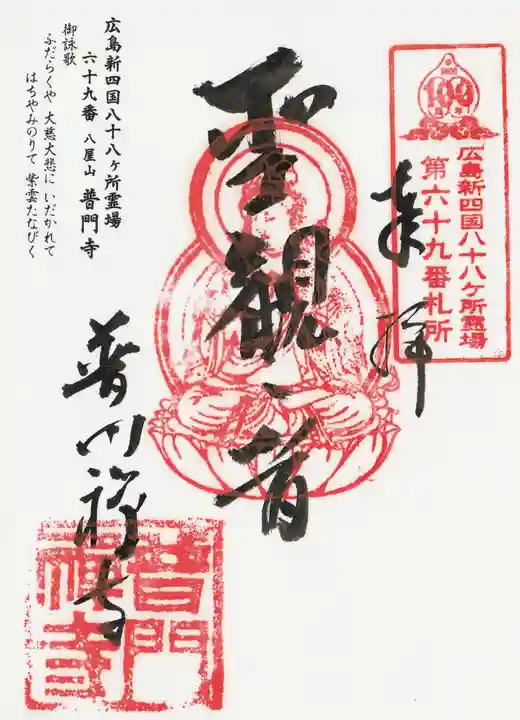 100
周年
広島新四国八十八ケ所霊場
第六十九番札所
奉拝
聖観音
普門禅寺
広島新四国八十八ヶ所霊場
六十九番 八屋山 普門寺
御詠歌
ふだらくや 大慈大悲に いだかれて
はちやみのりて 紫雲たなびく
普門
禅寺